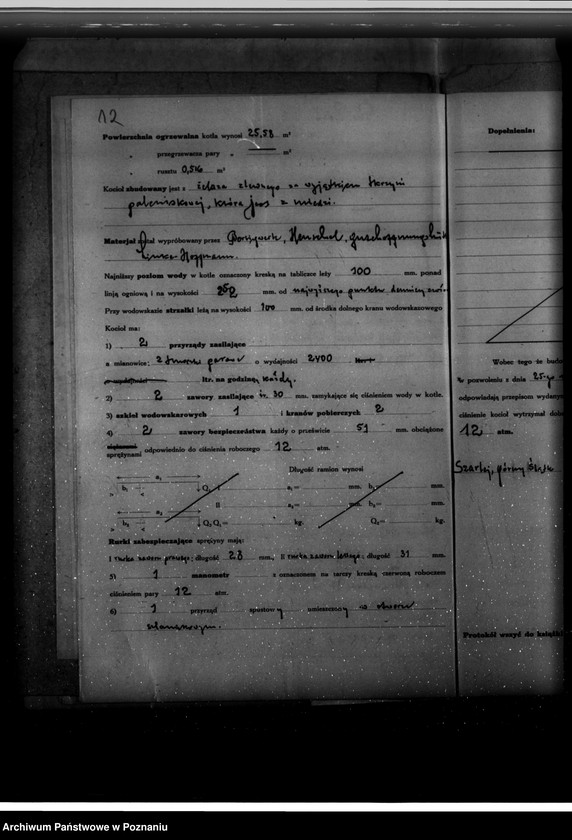 12
Powierzchnia ogrzewalna kotła wynosi 25,53 m²
„ przegrzewacza pary „ m²
„ rusztu 0,516 m²
Kocioł zbudowany jest z żelaza zlewnego za wyjątkiem skrzyni
paleniskowej, która jest z miedzi.
Materjał został wypróbowany przez Borsigwerk, Henschel,
Linke Hoffmann.
Najniższy poziom wody w kotle oznaczony kreską na tabliczce leży 100 mm. ponad
linją ogniową i na wysokości 250 mm. od najwyższego punktu
Przy wodowskazie strzałki leżą na wysokości 100 mm. od środka dolnego kranu wodowskazowego
Kocioł ma:
1) 2 przyrządy zasilające
a mianowicie: 2 o wydajności 2400
ltr. na godzinę każdy.
2) 2 zawory zasilające 30 mm. zamykające się ciśnieniem wody w kotle.
3) szkieł wodowskazowych 1 i kranów pobierczych 2
4) 2 zawory bezpieczeństwa każdy o prześwicie 51 mm. obciążone
sprężynami odpowiednio do ciśnienia roboczego 12 atm.
Długość ramion wynosi
a₁ b₁ Q₁ a₁= mm. b₁= mm.
II
a₂ b₂ Q₂ Q₁= kg. a₂= mm. b₂= mm.
Q₂= kg.
Rurki zabezpieczające sprężyny mają:
I rurka długość 28 mm., II rurka długość 31 mm.
5) 1 manometr z oznaczonem na tarczy kreską czerwoną roboczem
ciśnieniem pary 12 atm.
6) 1 przyrząd spustowy umieszczony w
Dopełnienia:
Wobec tego że
w pozwoleniu z dnia 25-go
odpowiadają przepisom
ciśnienie kocioł wytrzymał
12 atm.
Szarlej, górny Śląsk
Protokół wszyć do książki
Archiwum Państwowe w Poznaniu